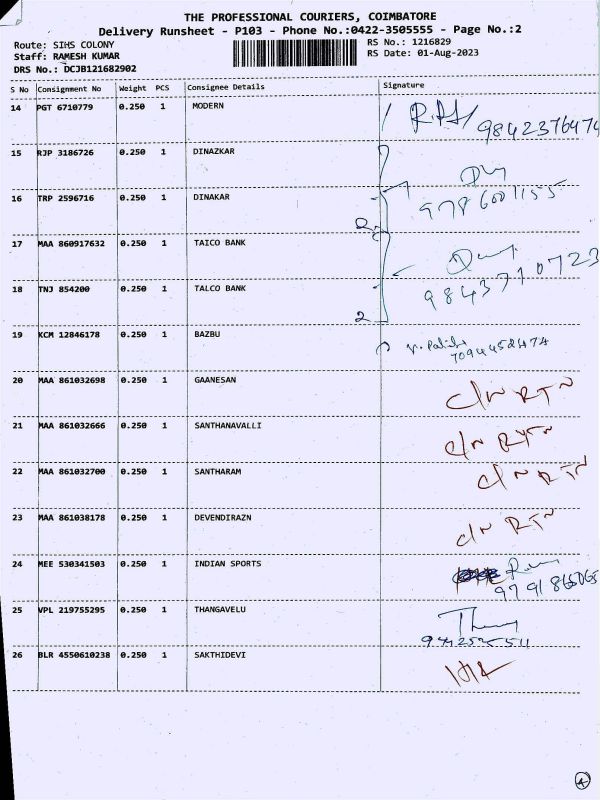 THE PROFESSIONAL COURIERS, COIMBATORE
Delivery Runsheet - P103 - Phone No.:0422-3505555 - Page No.:2
Route: SIHS COLONY
Staff: RAMESH KUMAR
DRS No.: DCJB121682902
RS No.: 1216829
RS Date: 01-Aug-2023
S No Consignment No Weight PCS Consignee Details Signature
14 PGT 6710779 0.250 1 MODERN
9842376474
15 RJP 3186726 0.250 1 DINAZKAR
16 TRP 2596716 0.250 1 DINAKAR
9786001155
2
17 MAA 860917632 0.250 1 TAICO BANK
18 TNJ 854200 0.250 1 TALCO BANK
9843710723
2
19 KCM 12846178 0.250 1 BAZBU
20 MAA 861032698 0.250 1 GAANESAN C/N RTN
21 MAA 861032666 0.250 1 SANTHANAVALLI C/N RTN
22 MAA 861032700 0.250 1 SANTHARAM C/N RTN
23 MAA 861038178 0.250 1 DEVENDIRAZN C/N RTN
24 MEE 530341503 0.250 1 INDIAN SPORTS
25 VPL 219755295 0.250 1 THANGAVELU
26 BLR 4550610238 0.250 1 SAKTHIDEVI